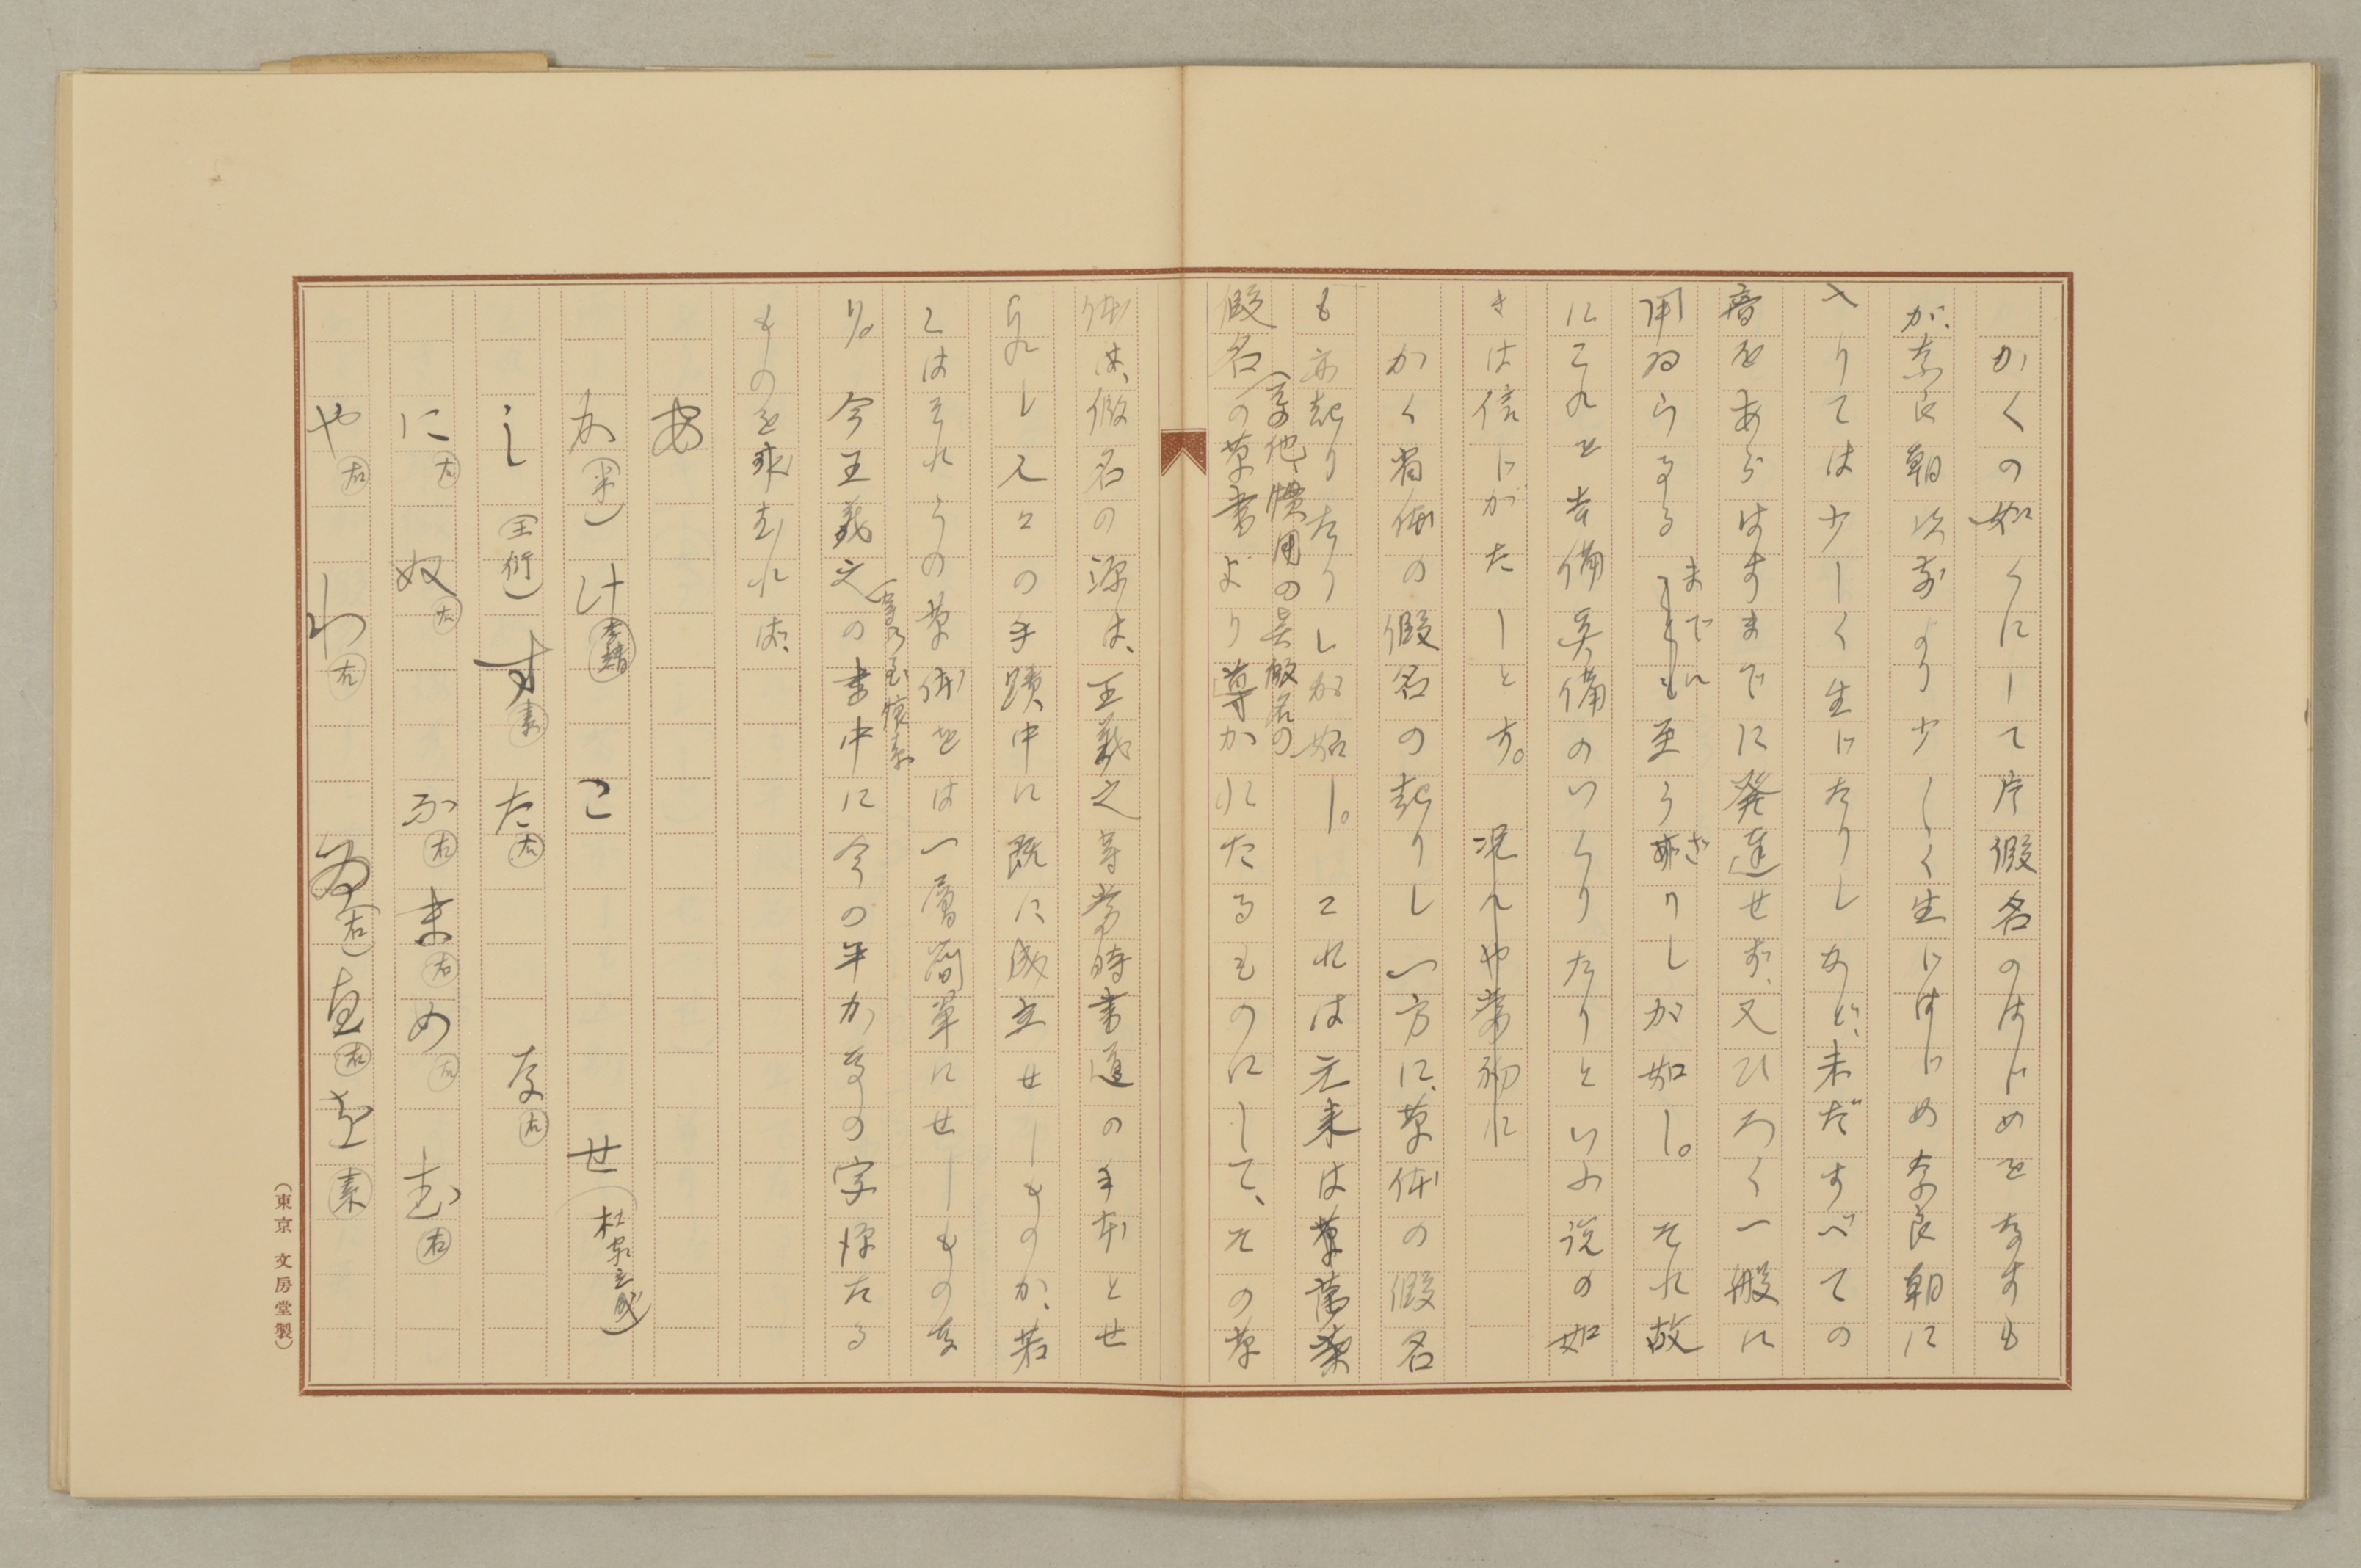 かくの如くにして片假名のはじめをなすも
が、奈良朝以前より少しく生じはじめ奈良朝に
入りては少しく生じたりしかど、未だすべての
音をあらはすまでに発達せず、又ひろく一般に
用ゐらるるまでに至らざりしが如し。それ故
にこれを吉備真備のいくりたりといふ説の如
きは信じがたしとす。況んや当初に
かく省体の假名の起りし一方に、草体の假名
も亦起りたりしが如し。これは元来は草藁
假名の草書より導かれたるものにして、その草
体は、假名の源は、王羲之等当時書道の手本とせ
られし人々の手蹟中に既に成立せしものか、若
くはそれらの草体をば一層簡單にせしものな
り。今王羲之の書中に今の平かなの字源たる
ものを求むれば、
あ
か け こ せ(杜家立成)
し(王衍)す(素)た(右)な(右)
に(右)奴(右)ふ(右)ま(右)め(右)む(右)
や(右)わ(右)ゐ(右)ゑ(右)を(素)
(東京 文房堂製)